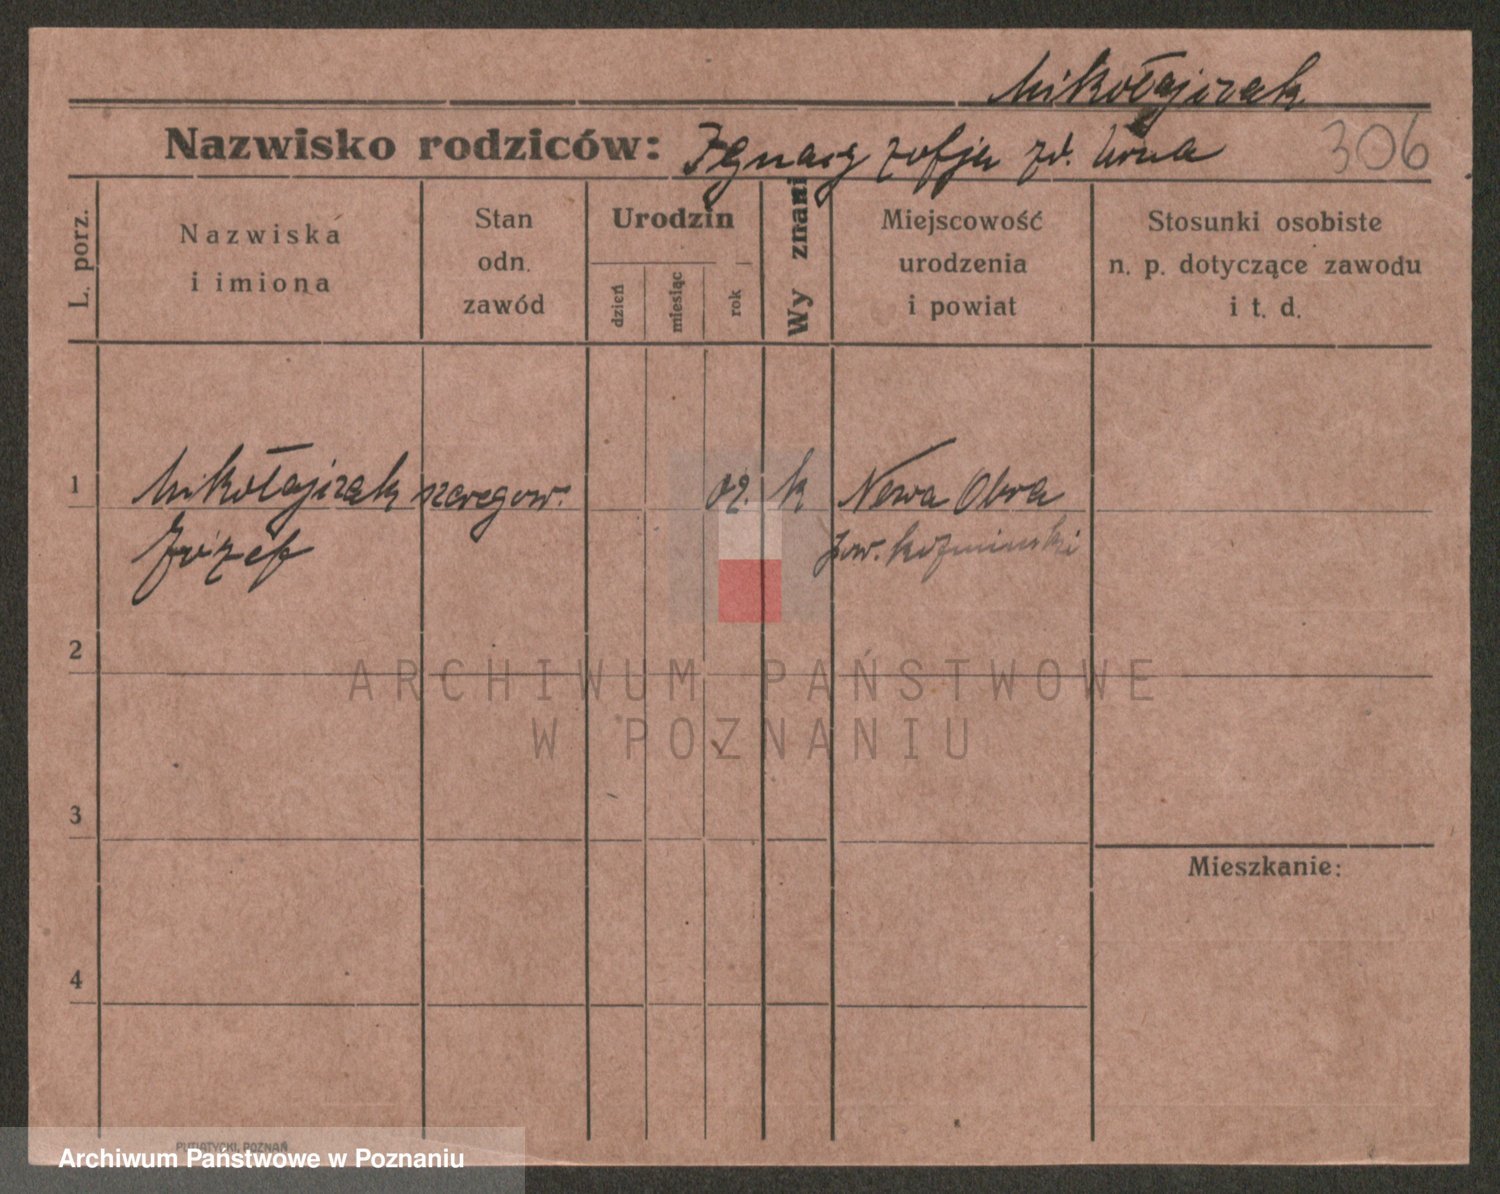 Mikołajczak
Nazwisko rodziców: Ignacy Zofja zd. Urna
306
L. porz.
Nazwiska
i imiona
Stan
odn.
zawód
Urodzin
dzień
miesiąc
rok
Wy znani
Miejscowość
urodzenia
i powiat
Stosunki osobiste
n. p. dotyczące zawodu
i t. d.
1
Mikołajczak szeregow. 02. k Nowa Obra
Józef pow. Koźmiński
2
ARCHIWUM PAŃSTWOWE
W POZNANIU
3
Mieszkanie:
4
PUTIATYCKI, POZNAŃ
Archiwum Państwowe w Poznaniu